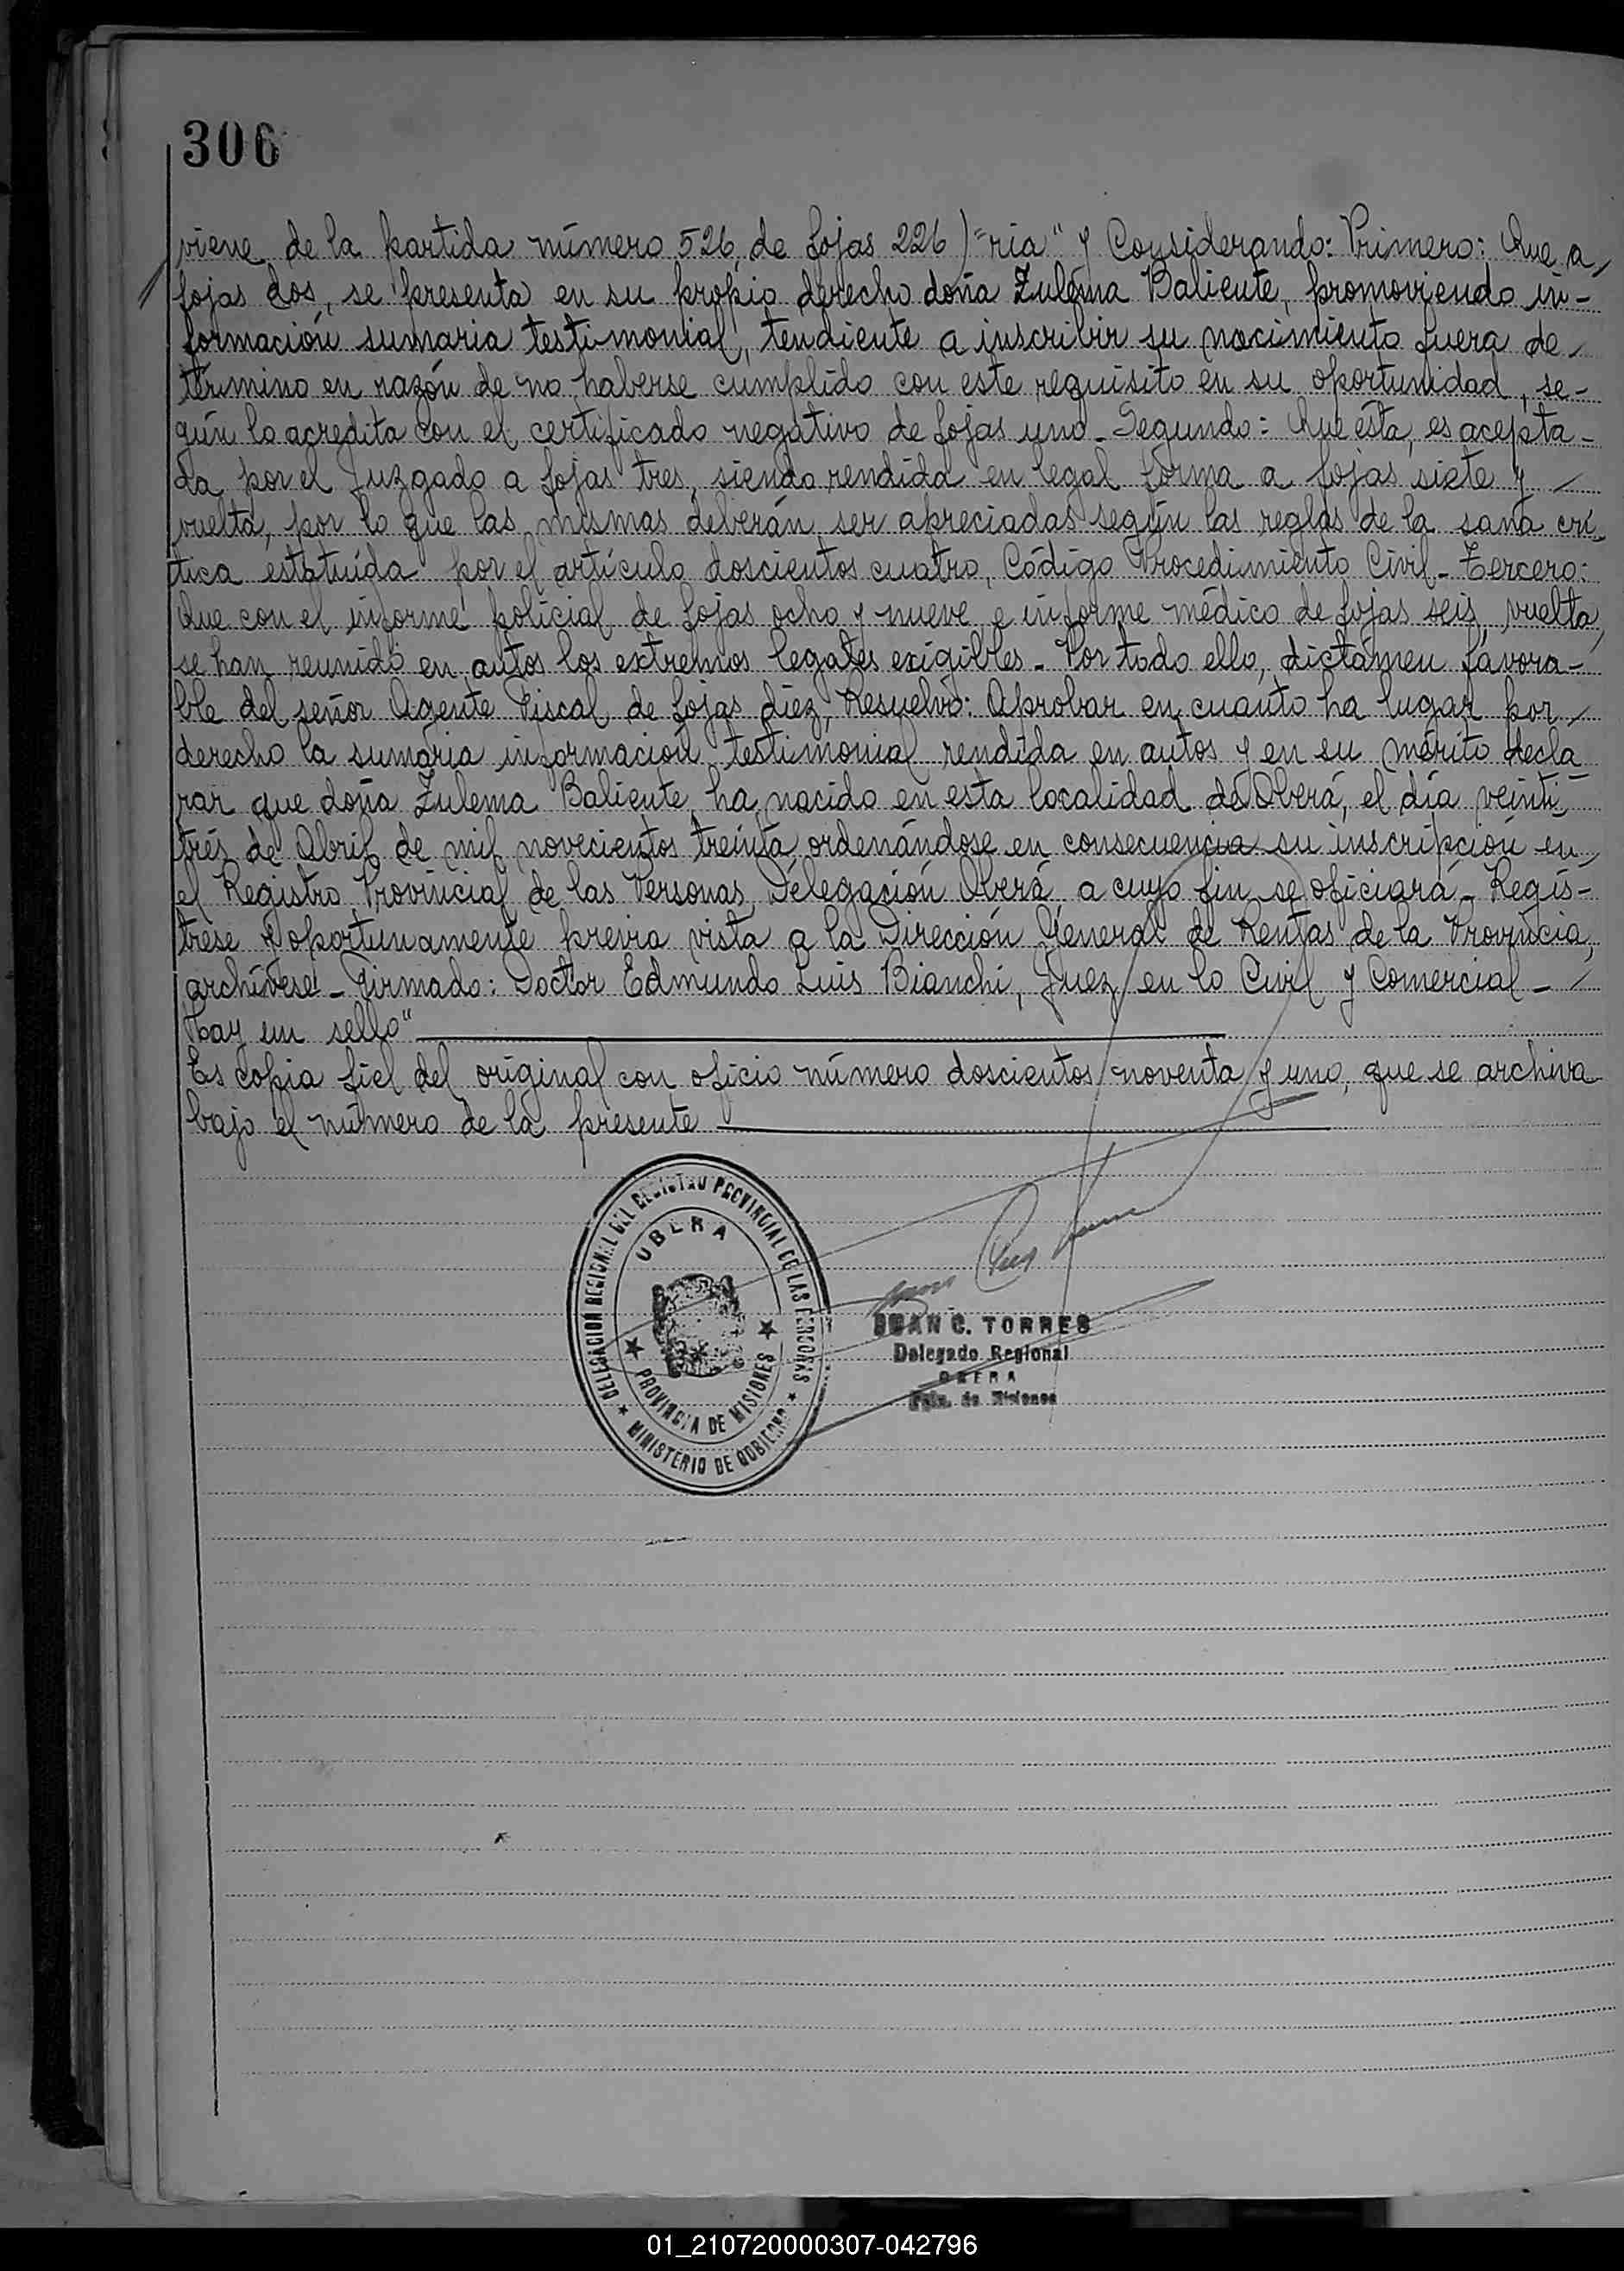 306
viene de la partida número 526, de fojas 226) "ria" y Considerando: Primero: Que a
fojas dos, se presenta en su propio derecho doña Zulema Baliente, promoviendo in-
formación sumaria testimonial, tendiente a inscribir su nacimiento fuera de
término en razón de no haberse cumplido con este requisito en su oportunidad, se-
gún lo acredita con el certificado negativo de fojas uno - Segundo: Que ésta, es acepta-
da por el Juzgado a fojas tres, siendo rendida en legal forma a fojas siete y
vuelta, por lo que las mismas deberán ser apreciadas según las reglas de la sana crí-
tica estatuída por el artículo doscientos cuatro, Código Procedimiento Civil - Tercero:
Que con el informe policial de fojas ocho y nueve e informe médico de fojas seis, vuelta,
se han reunido en autos los extremos legales exigibles - Por todo ello, dictamen favora-
ble del señor Agente Fiscal de fojas diez, Resuelvo: Aprobar en cuanto ha lugar por
derecho la sumaria información testimonial rendida en autos y en su mérito decla
rar que doña Zulema Baliente, ha nacido en esta localidad de Oberá, el día veinti-
trés de Abril de mil novecientos treinta, ordenándose en consecuencia su inscripción en
el Registro Provincial de las Personas, Delegación Oberá, a cuyo fin se oficiará - Regís-
trese y oportunamente previa vista a la Dirección General de Rentas de la Provincia,
archívese - Firmado: Doctor Edmundo Luis Bianchi, Juez en lo Civil y Comercial -
Hay un sello"
Es copia fiel del original con oficio número doscientos noventa y uno, que se archiva
bajo el número de la presente
DELEGACION REGIONAL DEL REGISTRO PROVINCIAL DE LAS PERSONAS
OBERA
PROVINCIA DE MISIONES
MINISTERIO DE GOBIERNO
JUAN C. TORRES
Delegado Regional
OBERA
Pcia. de Misiones
01_210720000307-042796